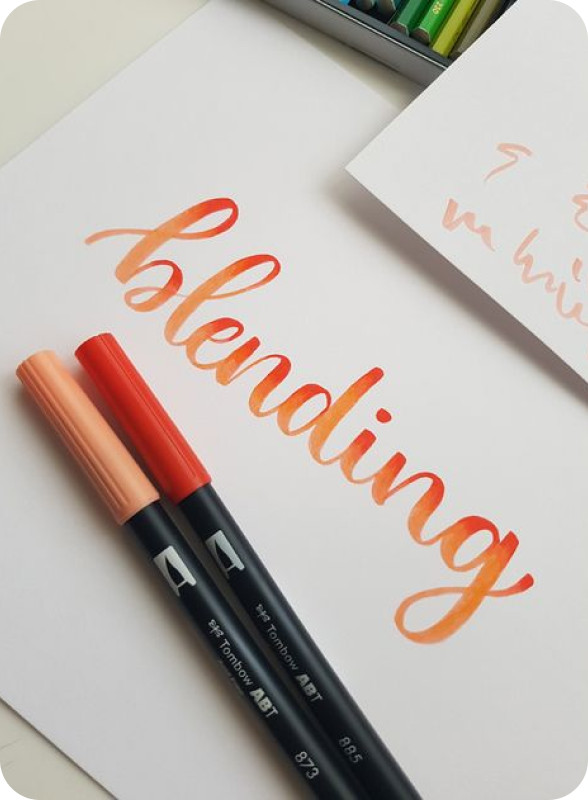 blending
Tombow ABT
873
Tombow ABT
885